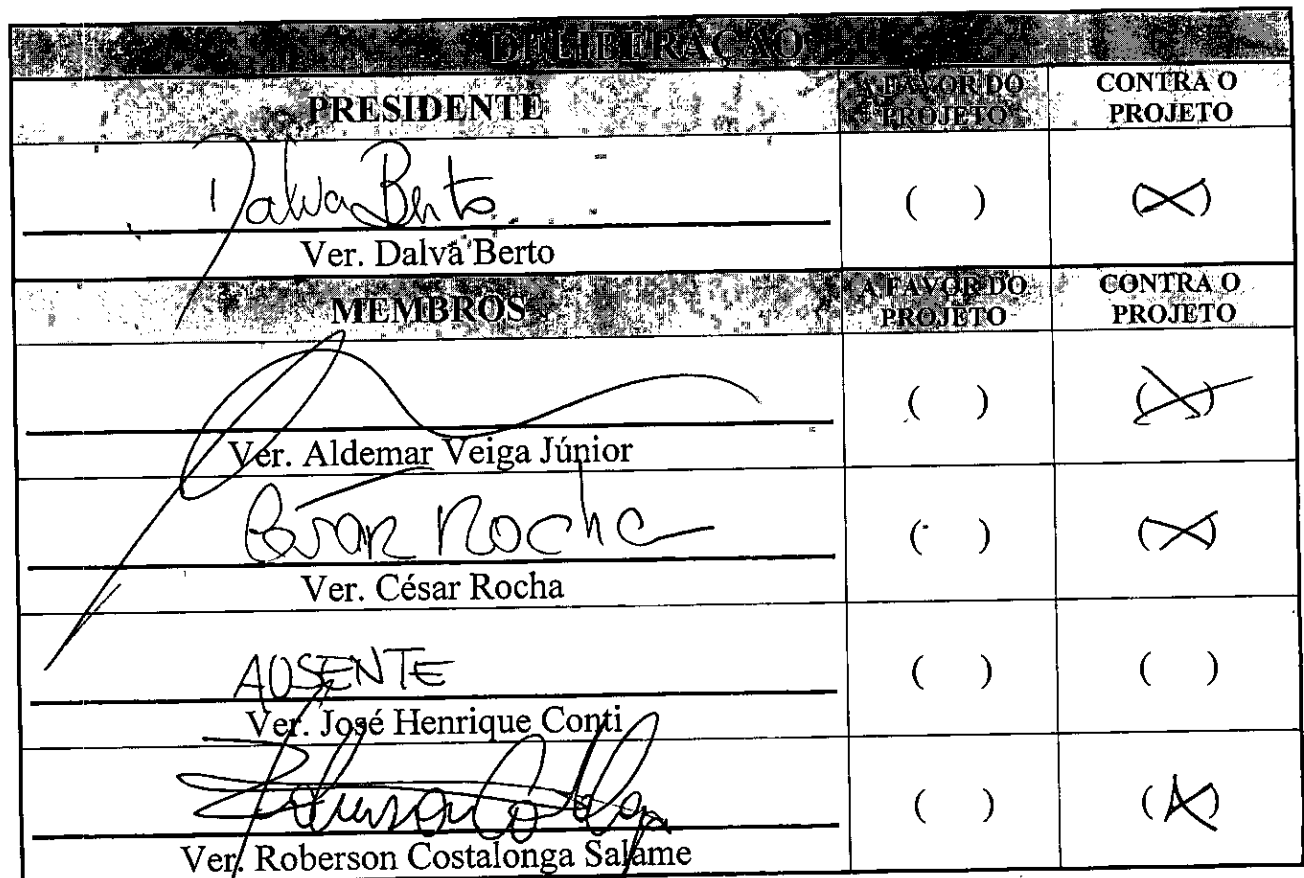 DELIBERAÇÃO
PRESIDENTE
A FAVOR DO PROJETO
CONTRA O PROJETO
Dalva Berto
( ) (X)
Ver. Dalva Berto
MEMBROS
A FAVOR DO PROJETO
CONTRA O PROJETO
( ) (X)
Ver. Aldemar Veiga Júnior
César Rocha
( ) (X)
Ver. César Rocha
AUSENTE
( ) ( )
Ver. José Henrique Conti
( ) (X)
Ver. Roberson Costalonga Salame